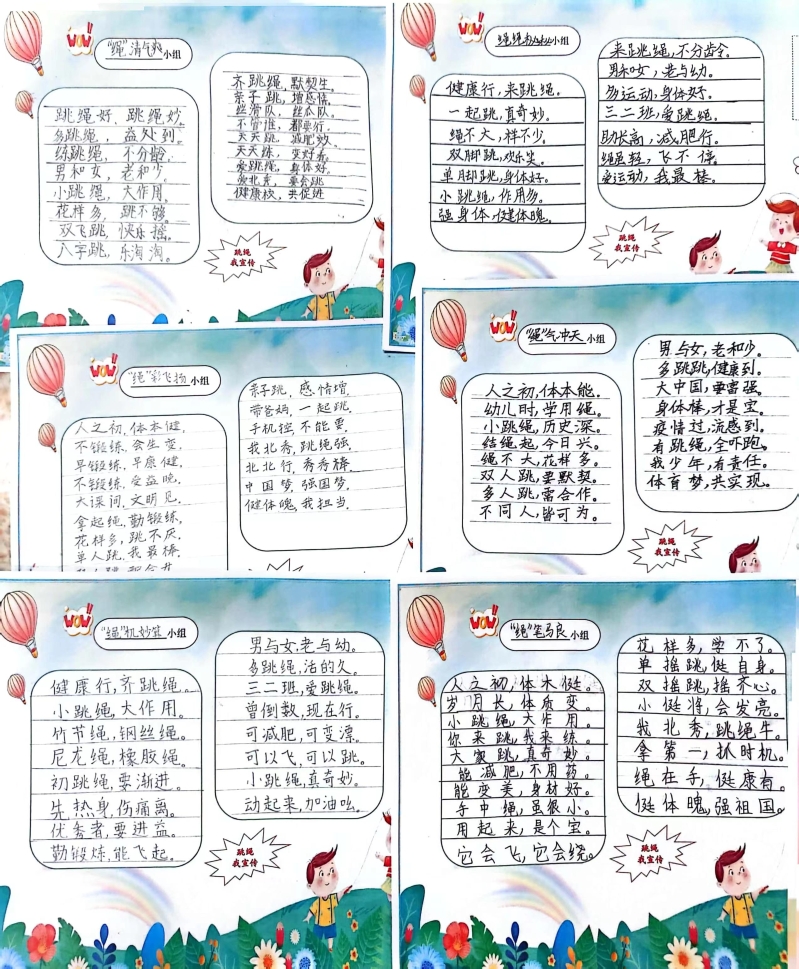 WOW!
"绳"清气爽小组
跳绳好，跳绳妙，
多跳绳，益处到。
练跳绳，不分龄，
男和女，老和少。
小跳绳，大作用，
花样多，跳不够。
双飞跳，快乐摇，
八字跳，乐淘淘。
齐跳绳，默契生，
亲子跳，增感情。
丝滑队，丝瓜队，
不管谁，都要行。
天天跳，减肥妙，
天天练，变好看。
爱跳绳，真体好，
爱北秀，要会跳
健康校，共促进
跳绳
我宣传
WOW!
小组
健康行，来跳绳。
一起跳，真奇妙。
绳不大，样不少。
双脚跳，欢乐笑。
单脚跳，身体好。
小跳绳，作用多。
强身体，健体魄。
来跳绳，不分龄。
男和女，老与幼。
多运动，身体好。
三二班，爱跳绳。
助长高，减肥行。
绳虽轻，飞不停。
爱运动，我最棒。
跳绳
我宣传
WOW!
"绳"彩飞扬小组
人之初，体本健，
不锻练，会生变。
早锻练，早康健，
不锻练，受益晚，
大课间，文明见，
拿起绳，勤锻练，
花样多，跳不厌，
单人跳，我最棒，
亲子跳，感情增，
带爸妈，一起跳，
手机控，不能要，
我北秀，跳绳强，
北北行，秀秀静，
中国梦，强国梦，
健体魄，我担当，
跳绳
WOW!
"绳"气冲天小组
人之初，体本能。
幼儿时，学用绳。
小跳绳，历史深。
结绳起，今日兴。
绳不大，花样多。
双人跳，要默契。
多人跳，需合作。
不同人，皆可为。
男与女，老和少。
多跳跳，健康到。
大中国，要富强。
身体棒，才是宝。
疫情过，流感到。
有跳绳，全吓跑。
我少年，有责任。
体育梦，共实现。
跳绳
我宣传
WOW!
"绳"机妙算小组
健康行，齐跳绳。
小跳绳，大作用。
竹节绳，钢丝绳。
尼龙绳，橡胶绳。
初跳绳，要渐进。
先热身，伤痛离。
优秀者，要进益。
勤锻炼，能飞起。
男与女，老与幼。
多跳绳，活的久。
三二班，爱跳绳。
曾倒数，现在行。
可减肥，可变漂。
可以飞，可以跳。
小跳绳，真奇妙。
动起来，加油吆。
跳绳
我宣传
WOW!
"绳"笔马良小组
人之初，体本健。
岁月长，体质变。
小跳绳，大作用。
你来跳，我来练。
大家跳，真奇妙。
能减肥，不用药。
能变美，身材好。
手中绳，虽很小。
用起来，是个宝。
它会飞，它会绕。
花样多，学不了。
单摇跳，健自身。
双摇跳，摇齐心。
小健将，会发亮。
我北秀，跳绳牛。
拿第一，抓时机。
绳在手，健康有。
健体魄，强祖国。
跳绳
我宣传